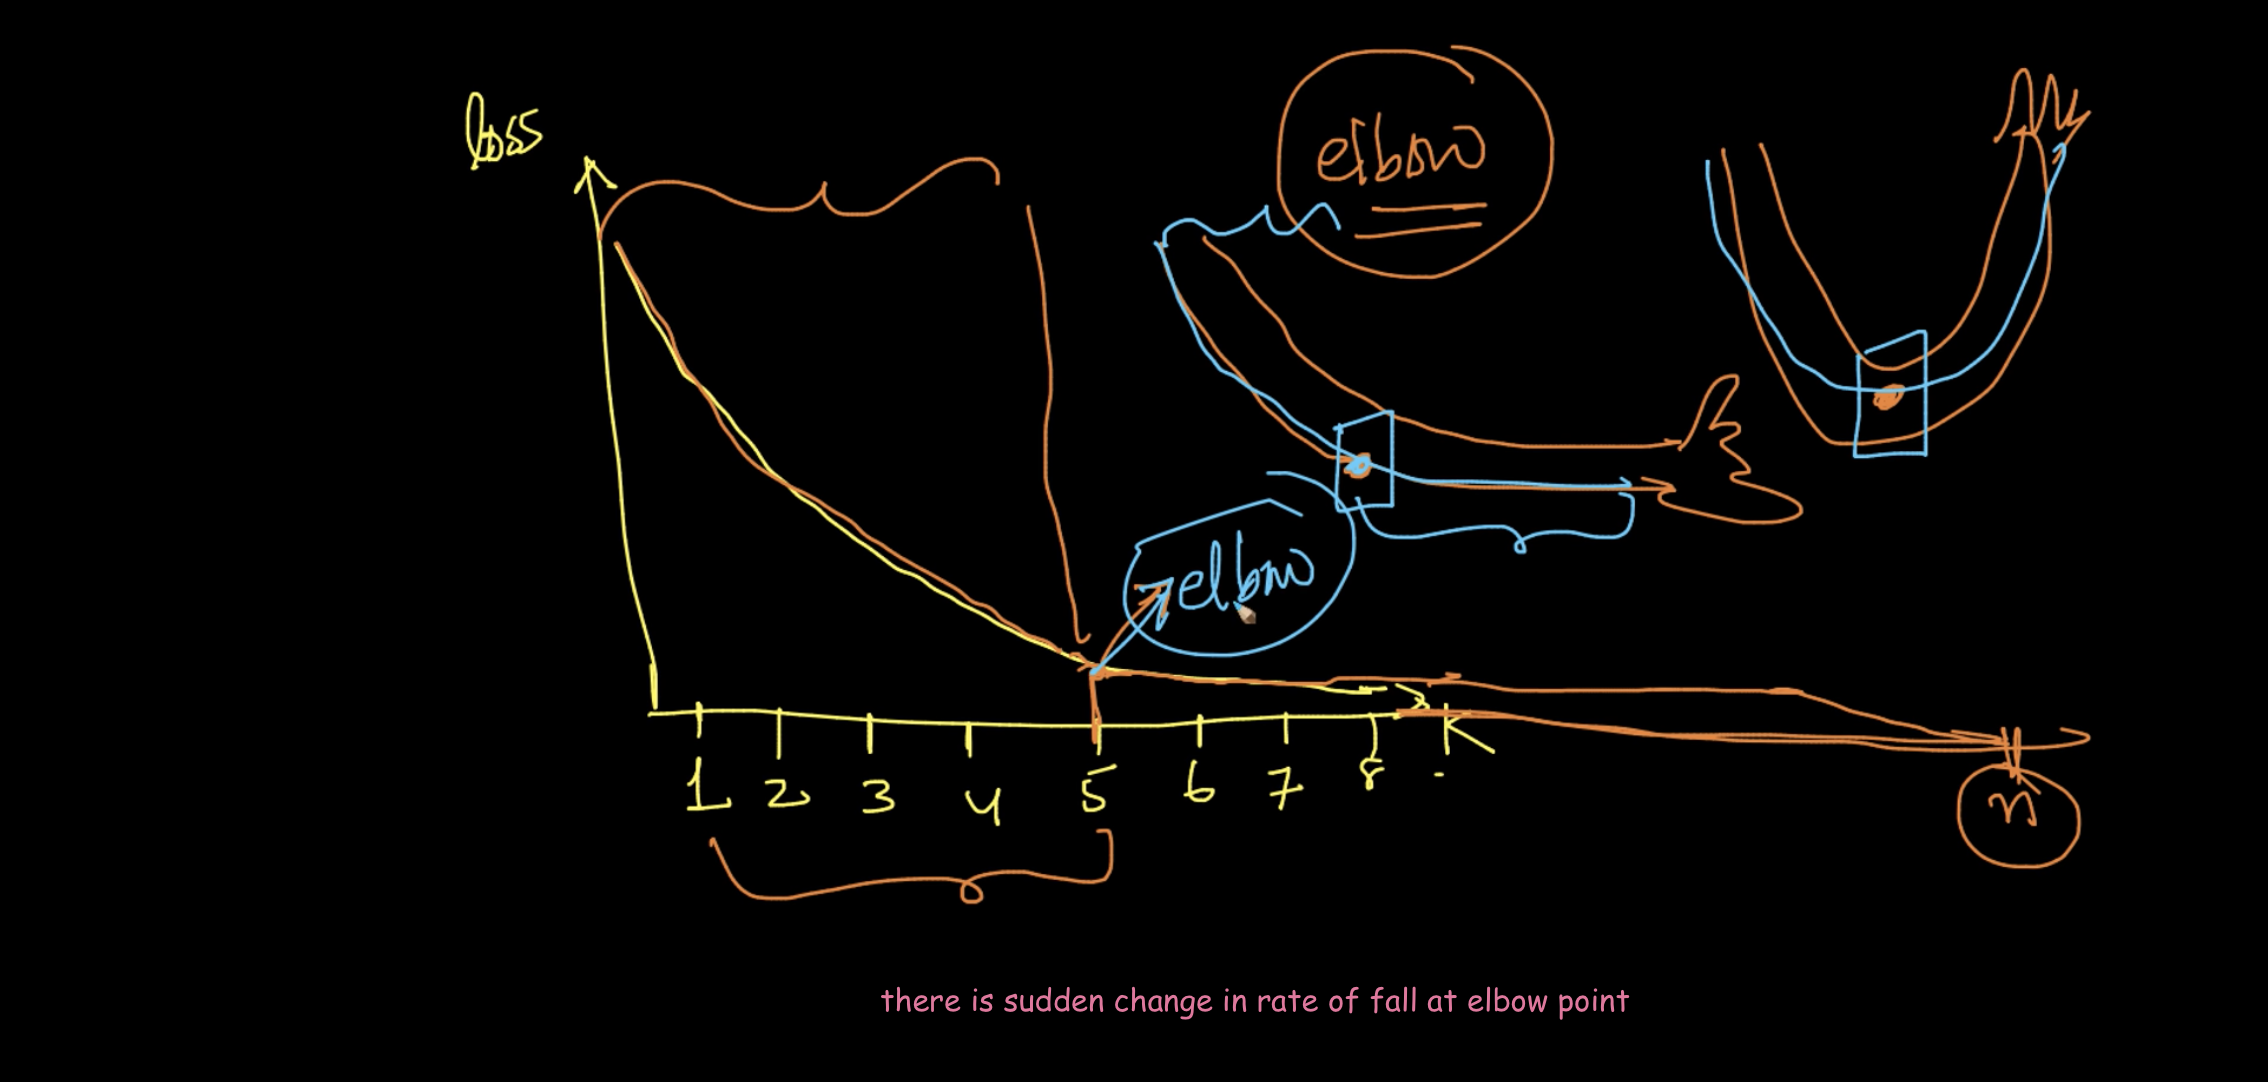 loss
elbow
elbow
K
1 2 3 4 5 6 7 8 .
n
there is sudden change in rate of fall at elbow point